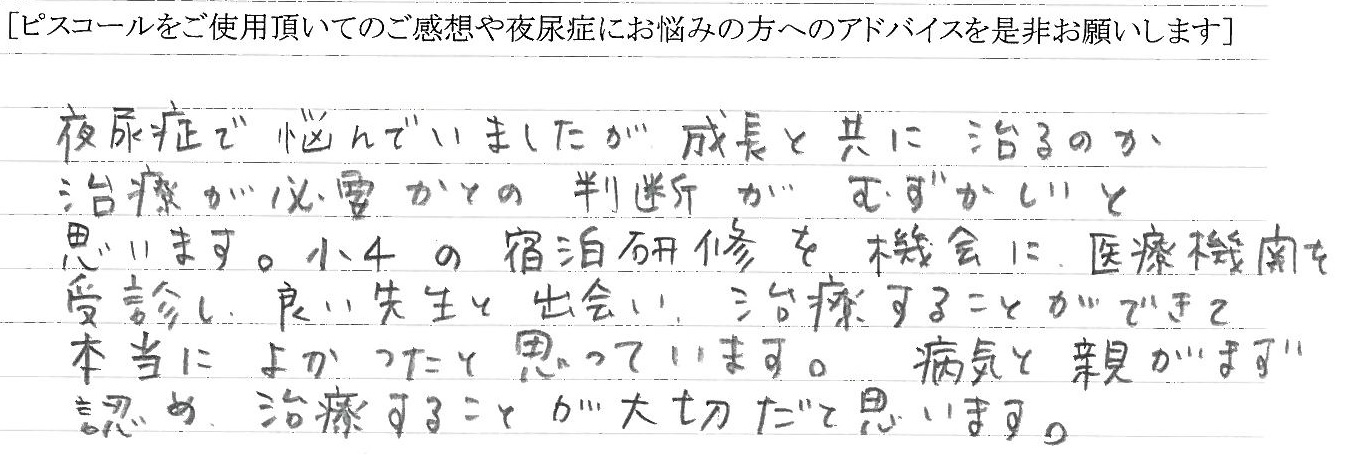 [ピスコールをご使用頂いてのご感想や夜尿症にお悩みの方へのアドバイスを是非お願いします]
夜尿症で 悩んでいましたが 成長と共に 治るのか、
治療が必要かとの 判断が むずかしいと
思います。小4の宿泊研修を機会に、医療機関を
受診し、良い先生と出会い、治療することができて
本当に よかったと思っています。 病気と親がまず
認め、治療することが大切だと思います。